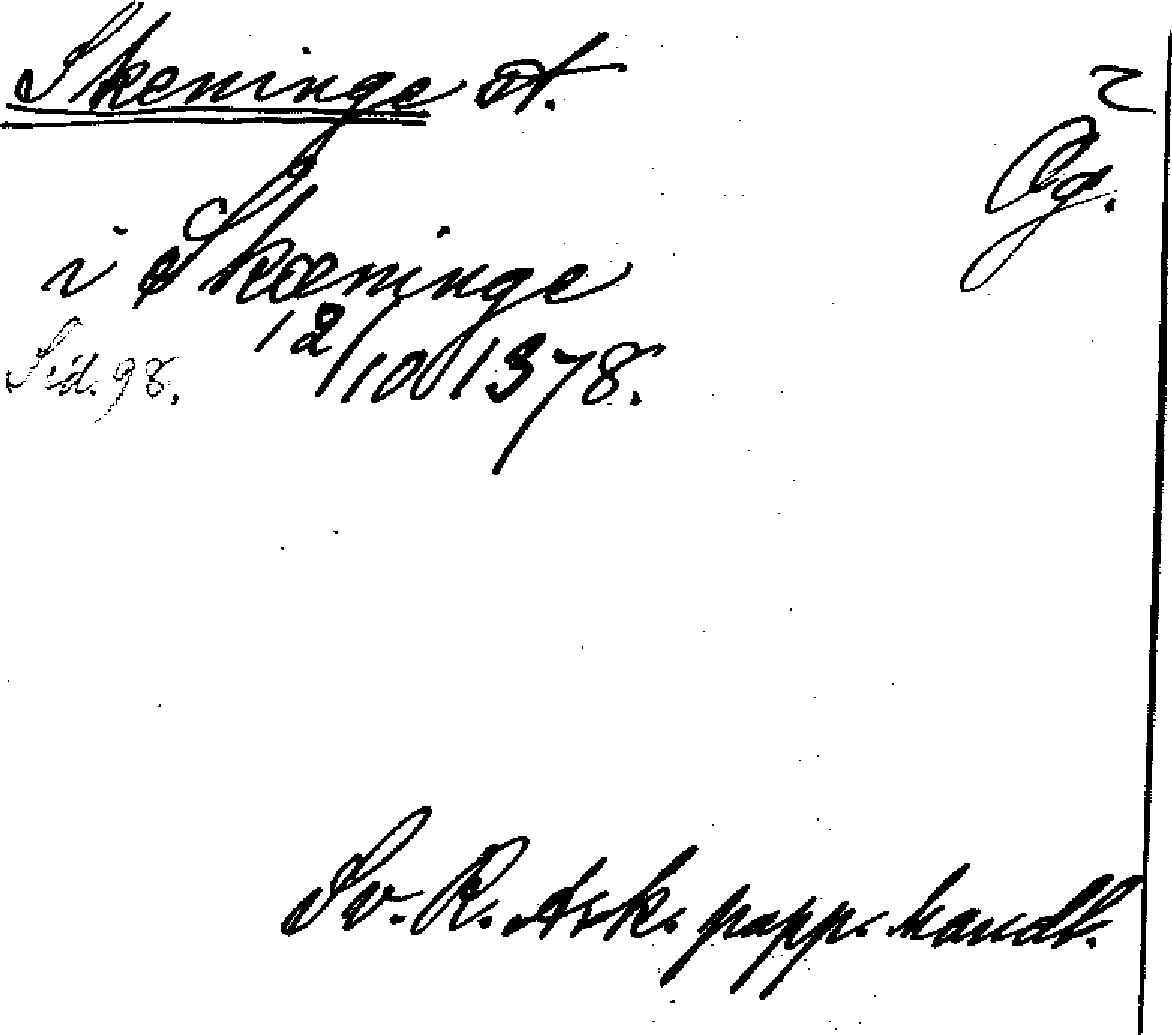 Skeninge st.
Ög.
i Skæninge
12/10 1378.
Sid. 98.
Sv. R. Ark. papp. handl.